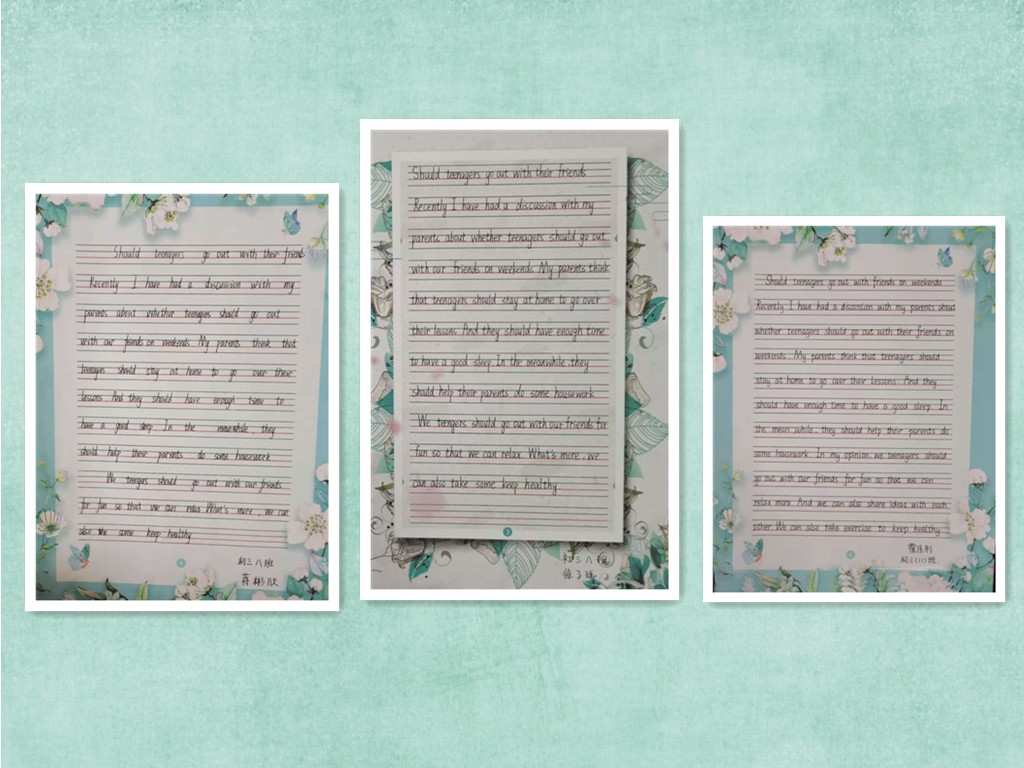 Should teenagers go out with their friends
Recently I have had a discussion with my
parents about whether teenagers should go out
with our friends on weekends My parents think that
teenagers should stay at home to go over their
lessons And they should have enough time to
have a good sleep. In the meanwhile, they
should help their parents do some housework
We tengers should go out with our friends
for fun so that we can relax What's more, we can
also some keep healthy
初三八班
蒋彬欣
Should teenagers go out with their friends
Recently I have had a discussion with my
parents about whether teenagers should go out
with our friends on weekends. My parents think
that teenagers should stay at home to go over
their lessons. And they should have enough time
to have a good sleep. In the meanwhile, they
should help their parents do some housework
We tengers should go out with our friends for
fun so that we can relax. What's more, we
can also take some keep healthy
3
初三八班
Should teenagers go out with friends on weekends
Recently I have had a discussion with my parents about
whether teenagers should go out with their friends on
weekends. My parents think that teenagers should
stay at home to go over their lessons. And they
should have enough time to have a good sleep. In
the mean while, they should help their parents do
some housework. In my opinion, we teenagers should
go out with our friends for fun so that we can
relax more. And we can also share ideas with each
other. We can also take exercise to keep healthy.